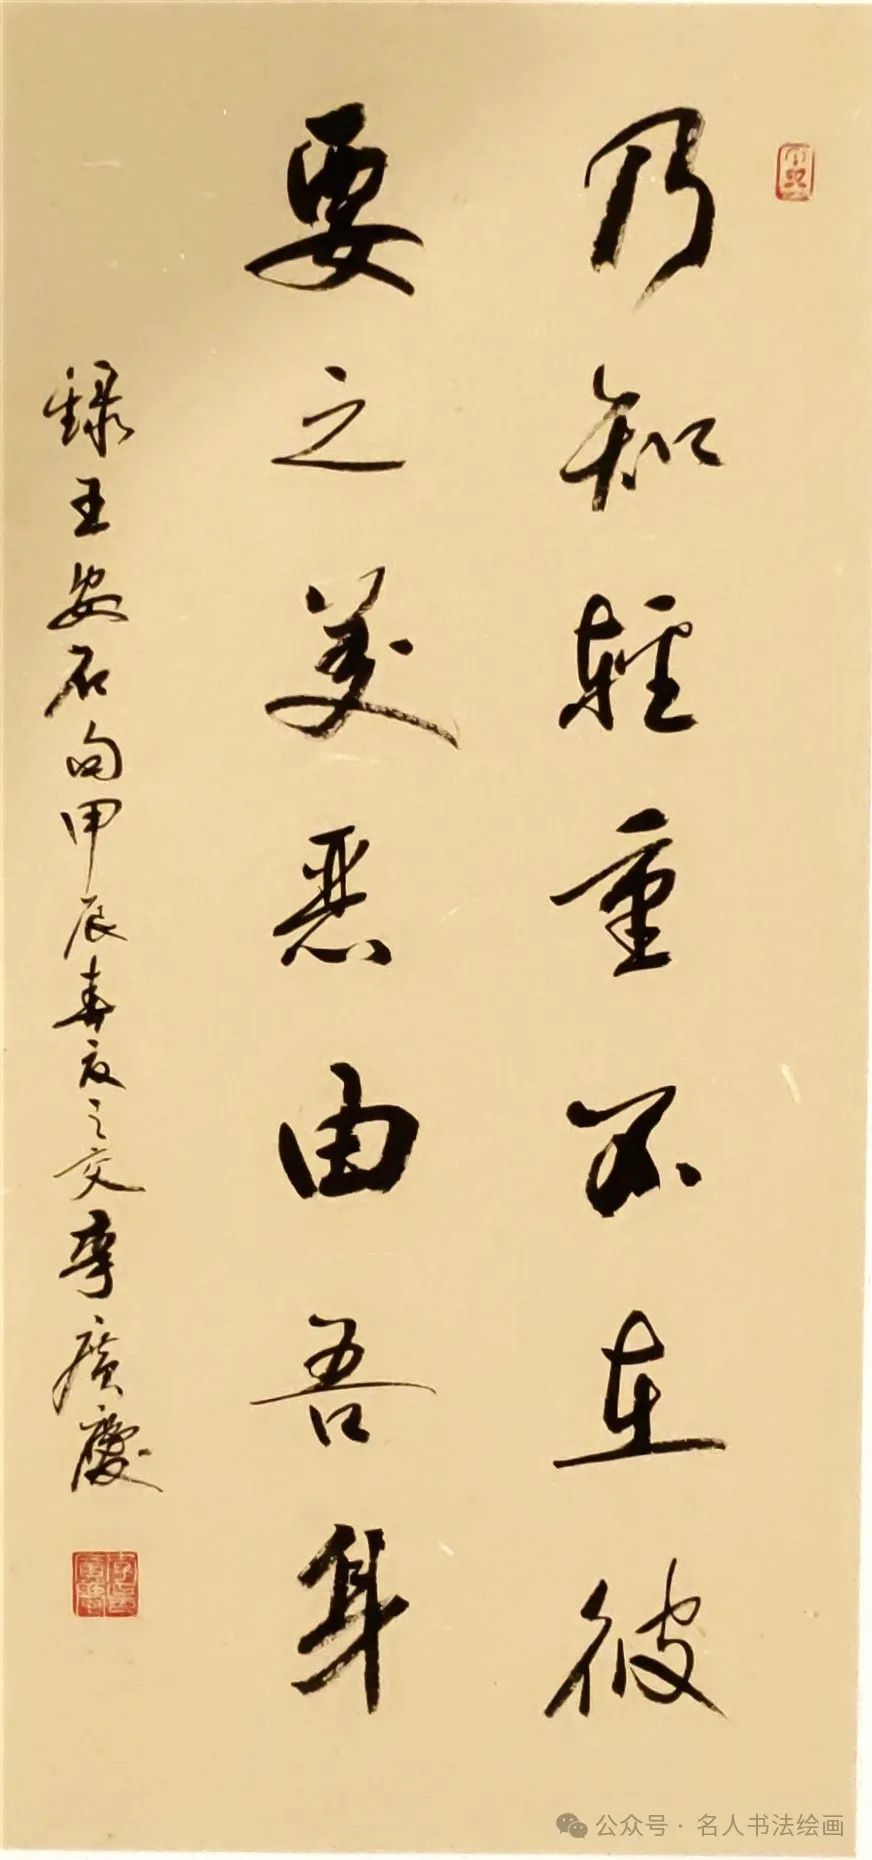 乃知輕重不在彼
要之美惡由吾身
録王安石句甲辰春夏之交李廣慶
公众号·名人书法绘画